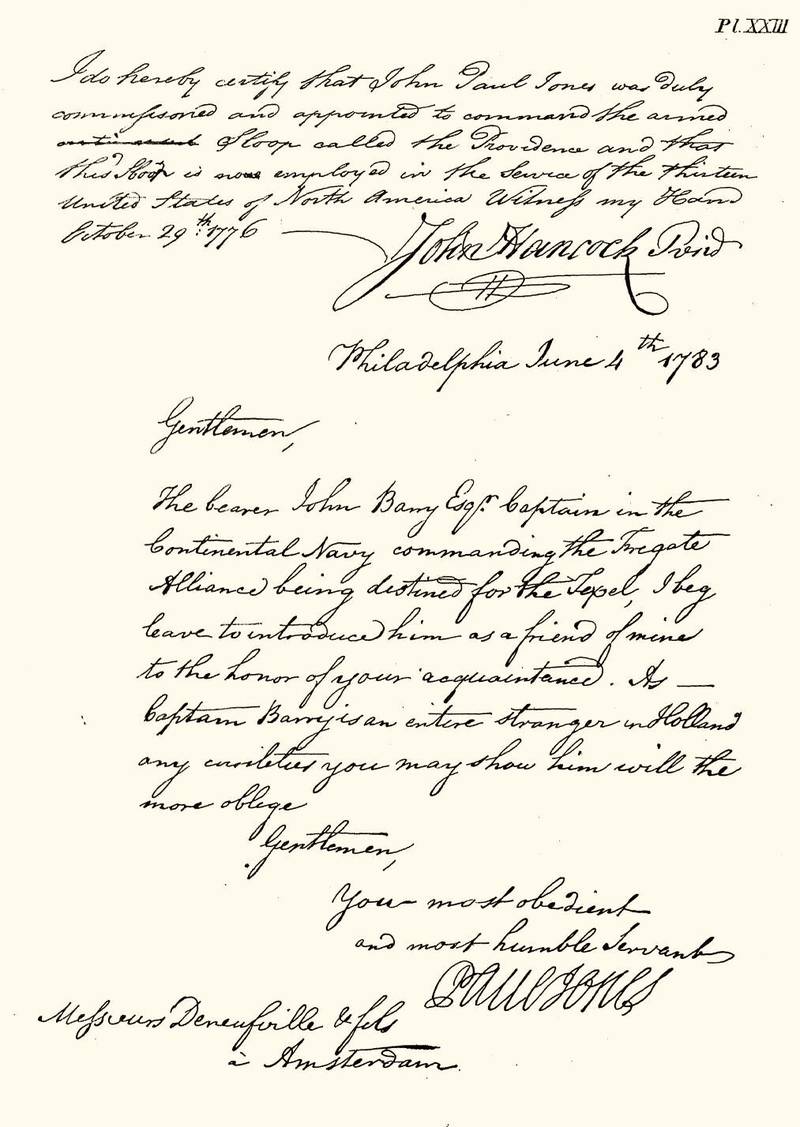 Pl. XXIII
I do hereby certify that John Paul Jones was duly
commissioned and appointed to command the armed
Sloop called the Providence and that
this Sloop is now employed in the Service of the thirteen
United States of North America Witness my Hand
October 29th. 1776
John Hancock Presid
Philadelphia June 4th 1783
Gentlemen,
The bearer John Barry Esqr. Captain in the
Continental Navy commanding the Fregate
Alliance being destined for the Texel, I beg
leave to introduce him as a friend of mine
to the honor of your acquaintance. As —
Captain Barry is an entire stranger in Holland
any civilities you may show him will the
more oblege
Gentlemen,
Your most obedient
and most humble Servant
Paul Jones
Messieurs Deneufville & fils
à Amsterdam.